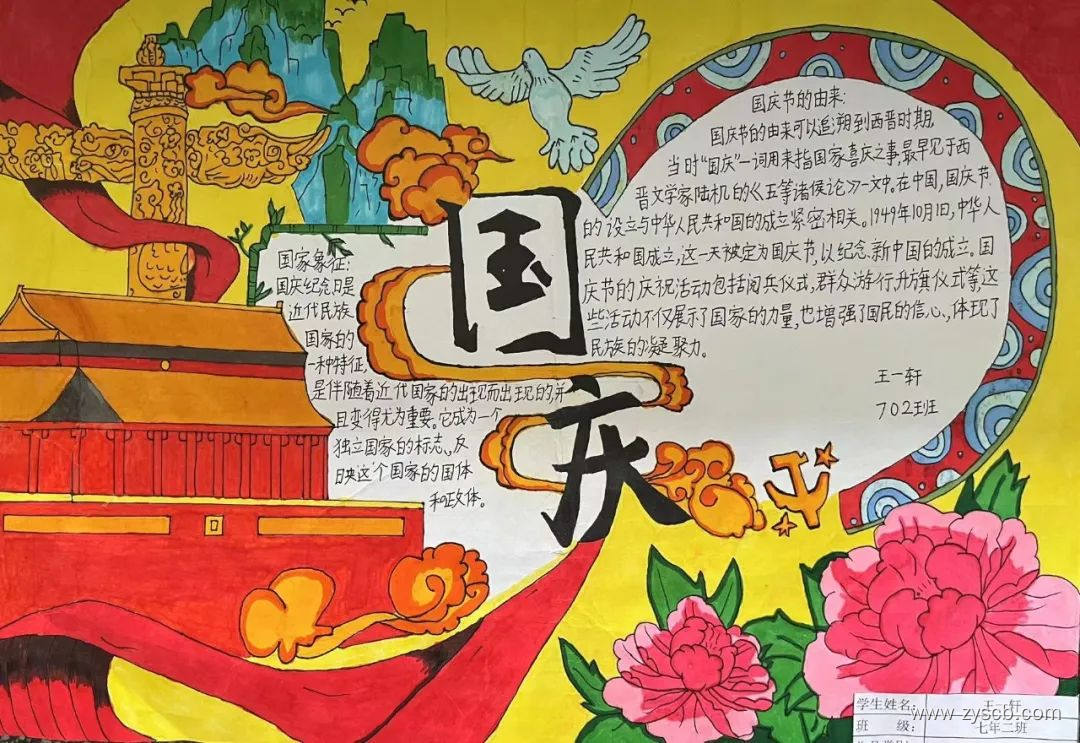 国庆
国家象征:
国庆纪念日是
近代民族
国家的
一种特征,
是伴随着近代国家的出现而出现的,并
且变得尤为重要。它成为一个
独立国家的标志、反
映这个国家的国体
和政体。
国庆节的由来:
国庆节的由来可以追溯到西晋时期,
当时“国庆”一词用来指国家喜庆之事,最早见于西
晋文学家陆机的《五等诸侯论》一文中。在中国,国庆节
的设立与中华人民共和国的成立紧密相关。1949年10月1日,中华人
民共和国成立,这一天被定为国庆节,以纪念新中国的成立。国
庆节的庆祝活动包括阅兵仪式,群众游行,升旗仪式等,这
些活动不仅展示了国家的力量,也增强了国民的信心、体现了
民族的凝聚力。
王一轩
702班
学生姓名: 王一轩
班 级: 七年二班
www.zyscb.com